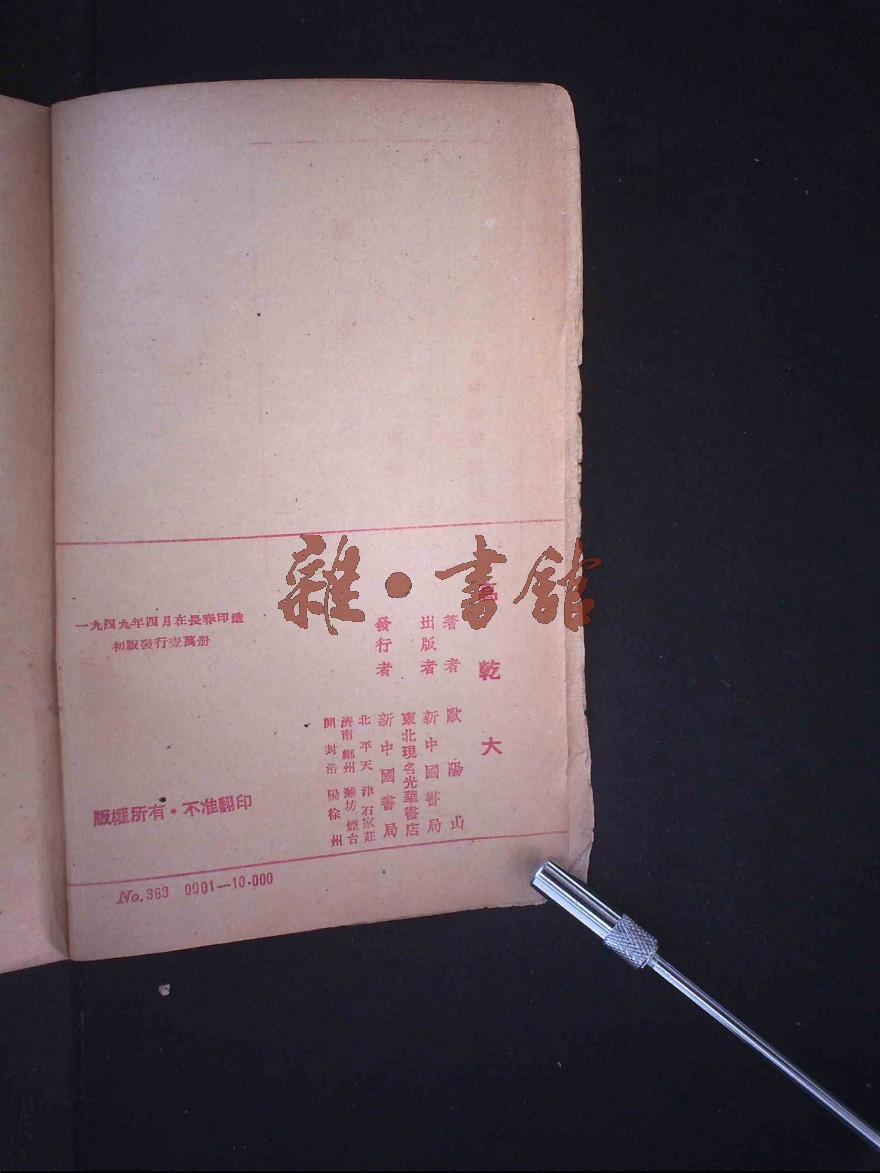 雜·書館
高乾大
著者 歐陽山
出版者 新中國書局
東北現名光華書店
發行者 新中國書局
北平天津石家莊
濟南鄭州濰坊煙台
開封洛陽徐州
一九四九年四月在長春印造
初版發行壹萬册
版權所有·不准翻印
No.363 0001—10.000